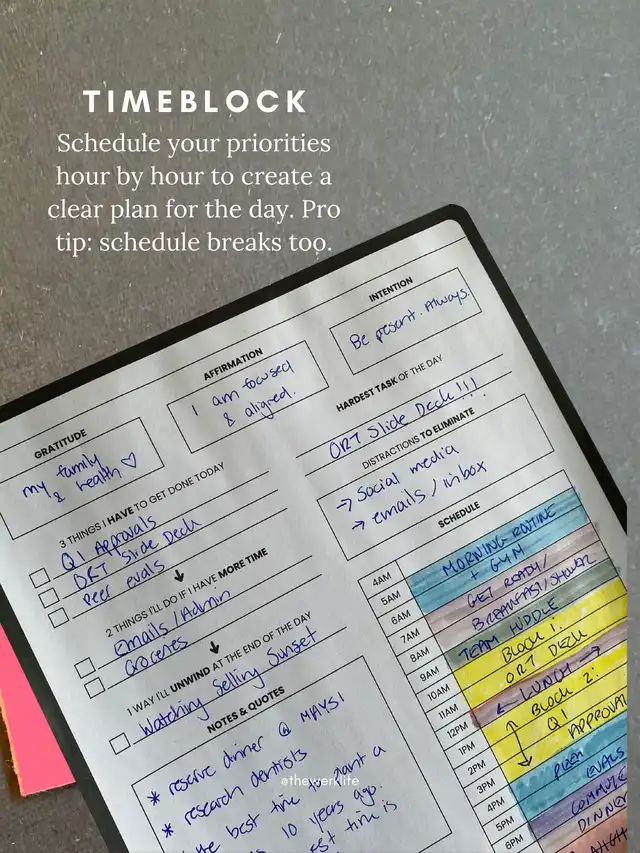 TIMEBLOCK
Schedule your priorities
hour by hour to create a
clear plan for the day. Pro
tip: schedule breaks too.
GRATITUDE
my family
& health ♡
AFFIRMATION
I am focused
& aligned.
INTENTION
Be present. Always.
3 THINGS I HAVE TO GET DONE TODAY
Q1 Approvals
ORT Slide Deck
Peer evals
2 THINGS I'LL DO IF I HAVE MORE TIME
Emails/Admin
Groceries
1 WAY I'LL UNWIND AT THE END OF THE DAY
Watching Selling Sunset
NOTES & QUOTES
* reserve dinner @ MAYSI
* research dentists
best time plant a
10 years ago.
time is
HARDEST TASK OF THE DAY
ORT Slide Deck!!!
DISTRACTIONS TO ELIMINATE
→ social media
→ emails / inbox
SCHEDULE
4AM
MORNING ROUTINE
5AM
+ GYM
6AM
GET READY/
7AM
BREAKFAST/SHOWER
8AM
TEAM HUDDLE
9AM
BLOCK 1:
10AM
ORT DECK
11AM
← LUNCH →
12PM
BLOCK 2:
1PM
Q1
2PM
APPROVA
3PM
PEER
4PM
EVALS
5PM
COMMUTE
6PM
DINNER
@thewerklife